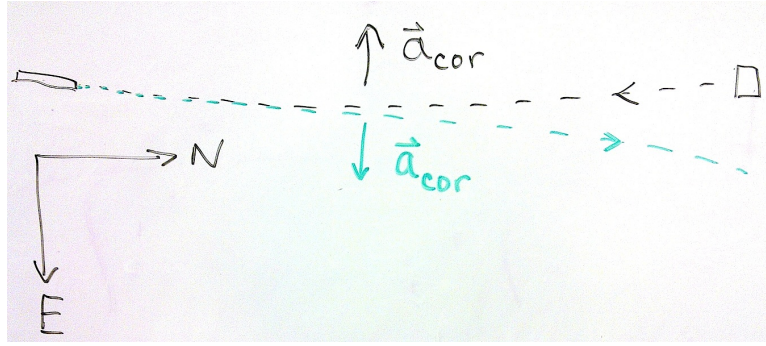 a⃗cor
a⃗cor
N
E